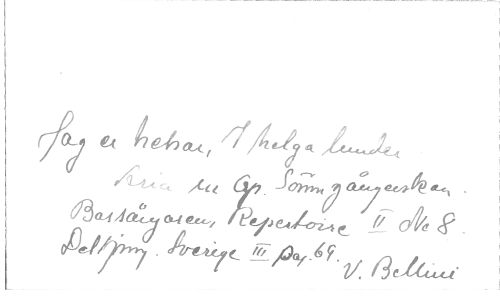 Jag er helsar, I helga lunder
Aria ur Op. Sömngångerskan.
Bassångaren, Repertoire II No 8.
Sverige III Pag. 69.
V. Bellini